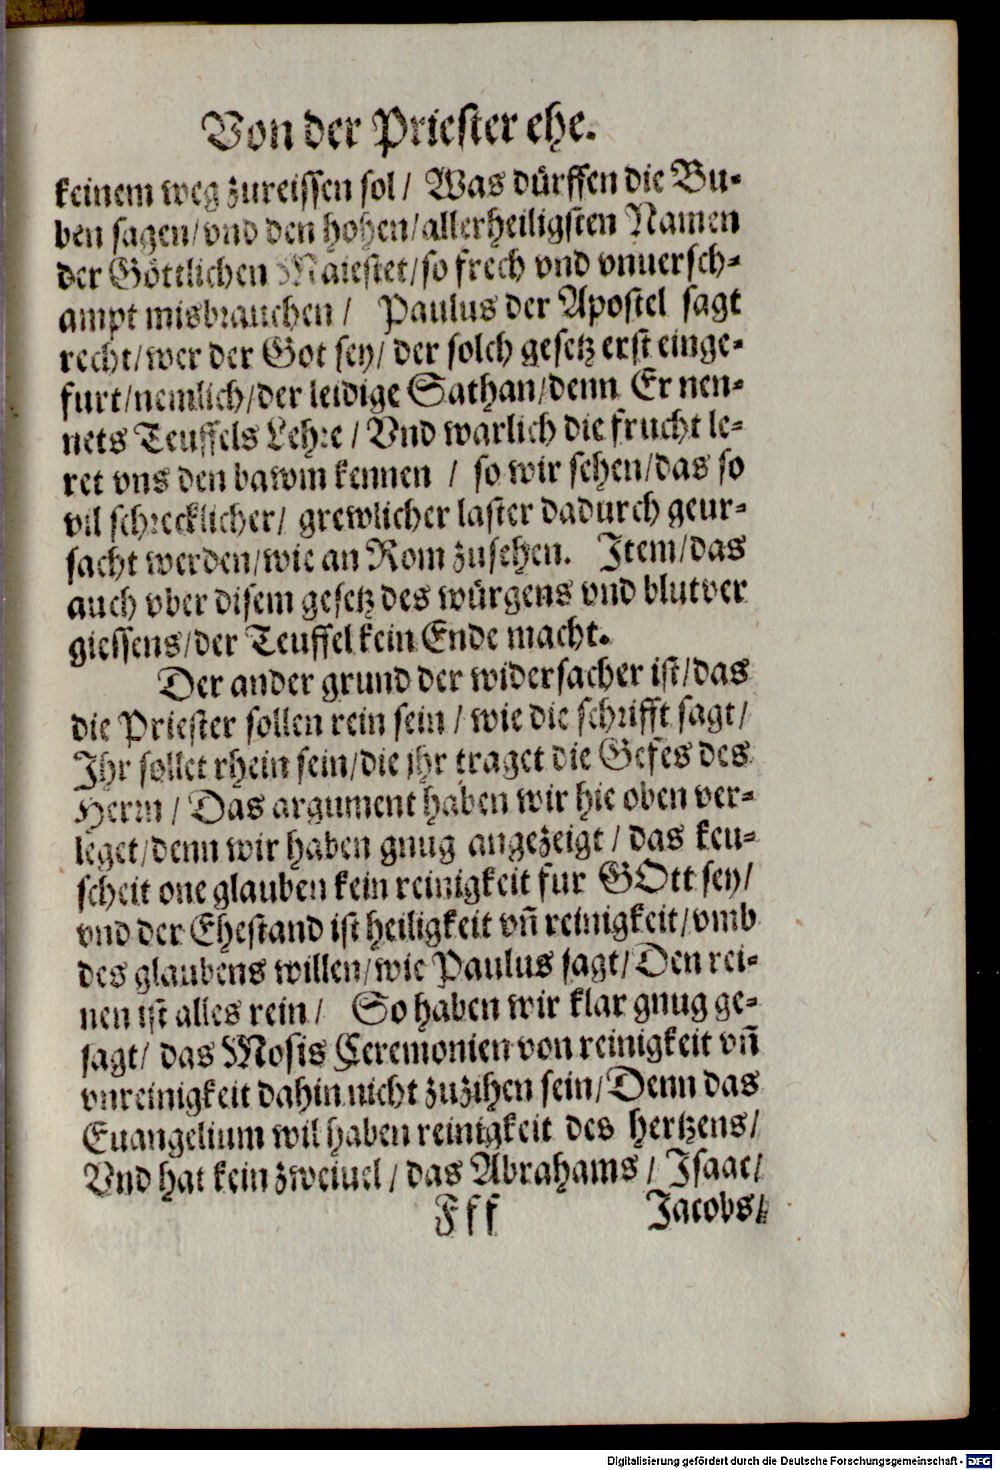 Von der Priester ehe.
keinem weg zureissen sol/ Was dürffen die Bu-
ben sagen/vnd den hohen/allerheiligsten Namen
der Göttlichen Maiestet/so frech vnd vnuersch-
ampt misbrauchen/ Paulus der Apostel sagt
recht/wer der Got sey/der solch gesetz erst einge-
furt/nemlich/der leidige Sathan/denn Er nen-
nets Teuffels Lehre/Vnd warlich die frucht le-
ret vns den bawm kennen / so wir sehen/das so
vil schrecklicher/ grewlicher laster dadurch geur-
sacht werden/wie an Rom zusehen. Item/das
auch vber disem gesetz des würgens vnd blutver
giessens/der Teuffel kein Ende macht.
Der ander grund der widersacher ist/das
die Priester sollen rein sein/wie die schrifft sagt/
Ihr sollet rhein sein/die jhr traget die Gefes des
Herrn/Das argument haben wir hie oben ver-
leget/denn wir haben gnug angezeigt/das keu-
scheit one glauben kein reinigkeit fur GOtt sey/
vnd der Ehestand ist heiligkeit vn̄ reinigkeit/vmb
des glaubens willen/wie Paulus sagt/Den rei-
nen ist alles rein/ So haben wir klar gnug ge-
sagt/ das Mosis Ceremonien von reinigkeit vn̄
vnreinigkeit dahin nicht zuzihen sein/Denn das
Euangelium wil haben reinigkeit des hertzens/
Vnd hat kein zweiuel/das Abrahams/Isaac/
Fff Jacobs/
Digitalisierung gefördert durch die Deutsche Forschungsgemeinschaft - DFG